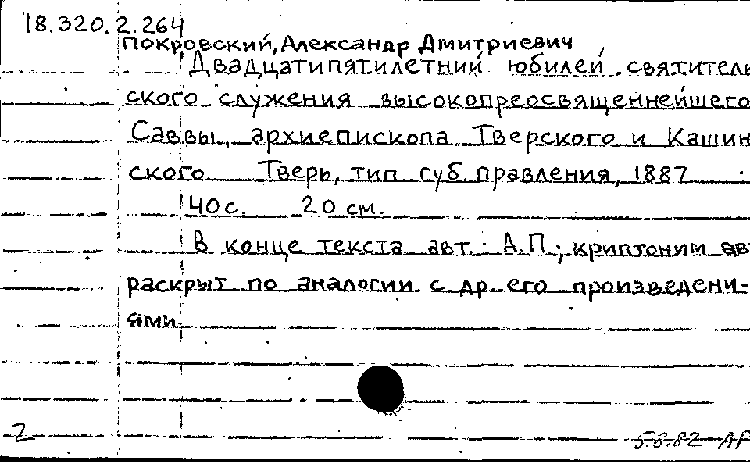 18.320.2.264
Покровский, Александр Дмитриевич
Двадцатипятилетний юбилей святитель
ского служения высокопреосвященнейшего
Саввы, архиепископа Тверского и Кашин
ского Тверь, тип губ. правления, 1887
40 с. 20 см.
В конце текста авт.: А.П.; криптоним ав
раскрыт по аналогии с др. его произведени-
ями
2 5.8.82